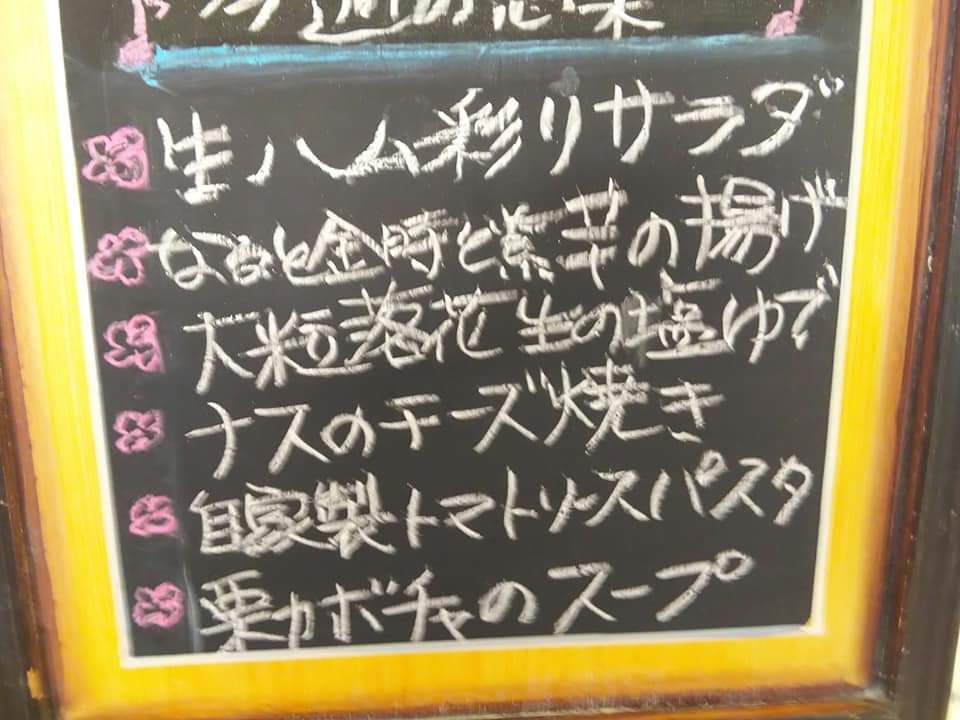 今週の惣菜
生ハム彩りサラダ
なると金時と紫芋の揚げ
大粒落花生の塩ゆで
ナスのチーズ焼き
自家製トマトソースパスタ
栗カボチャのスープ